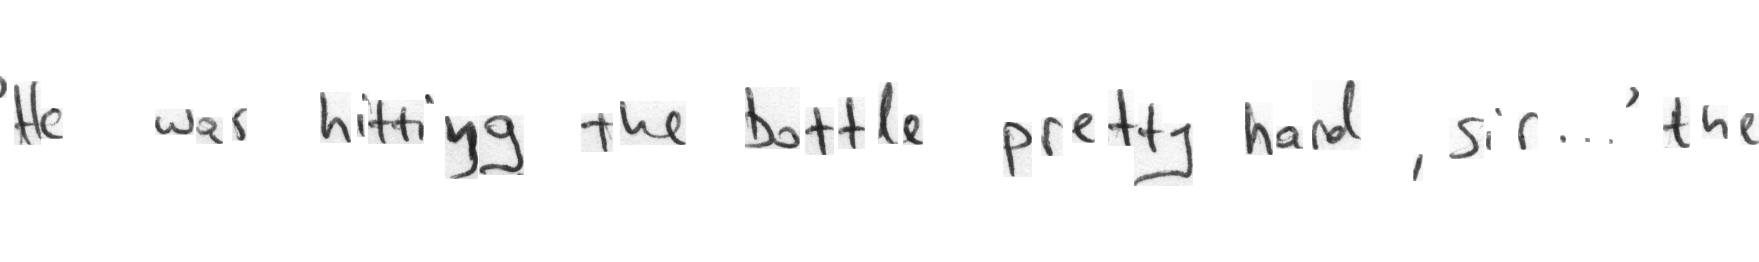 'He was hittiyg the bottle pretty hard , sir...' the